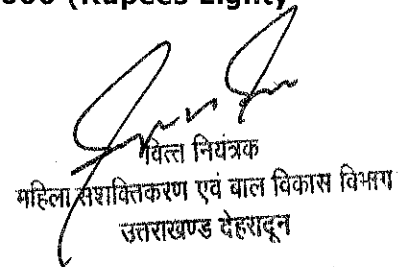 (Rupees Eighty
वित्त नियंत्रक
महिला सशक्तिकरण एवं बाल विकास विभाग
उत्तराखण्ड देहरादून